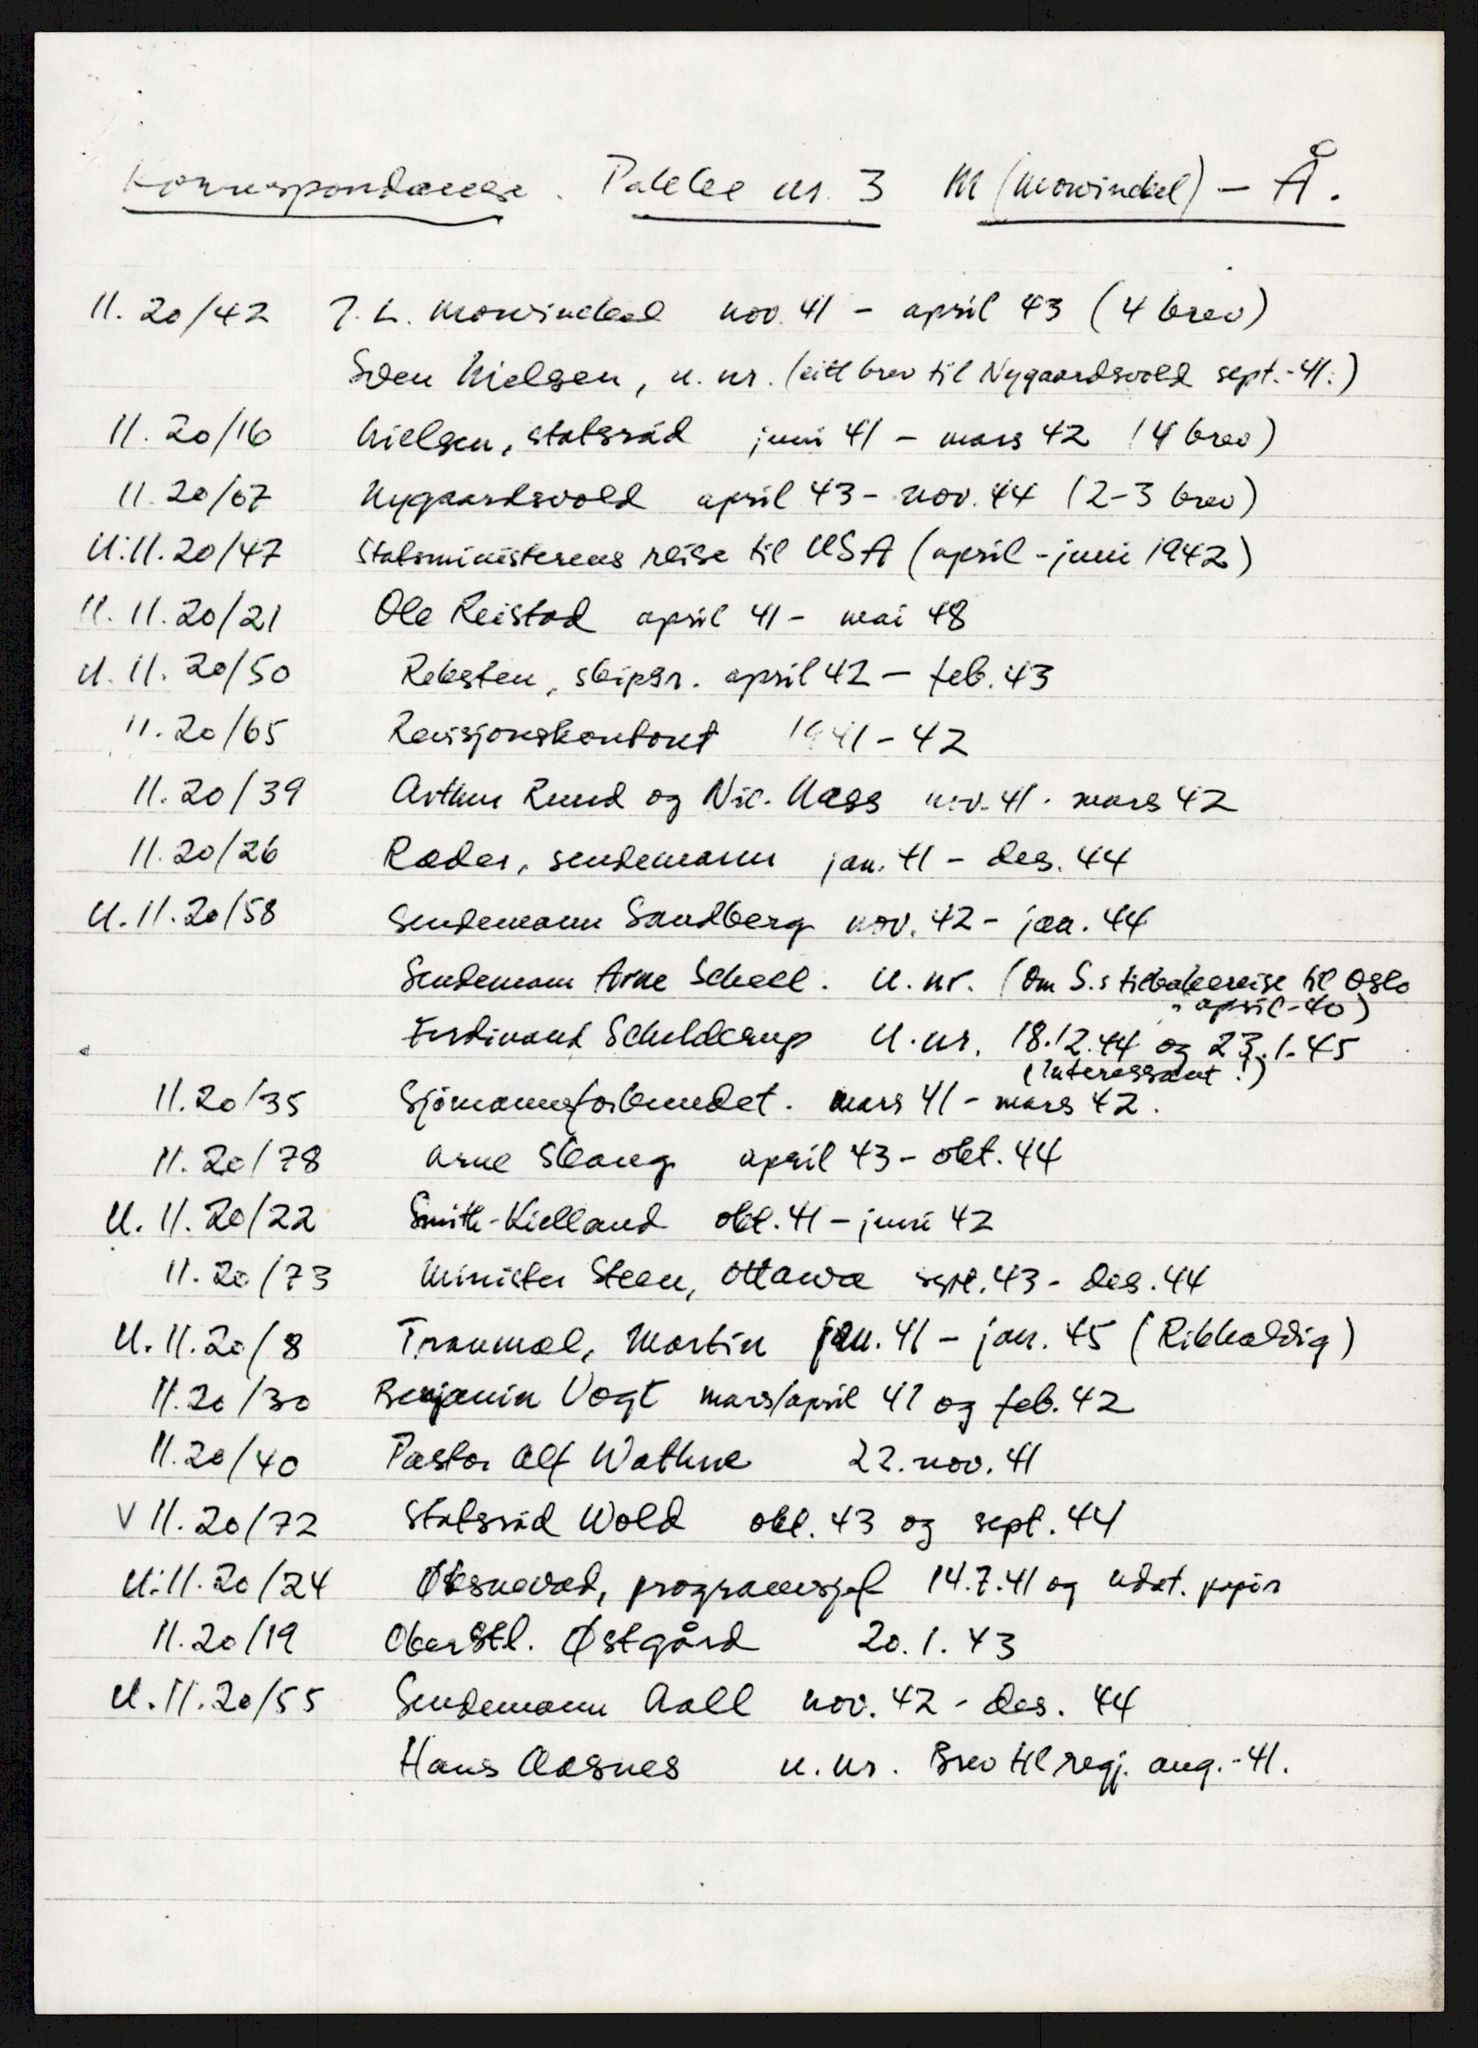 Korrespondanse. Pakke nr. 3 M (Mowinckel) – Å.
II. 20/42 J. L. Mowinckel nov. 41 – april 43 (4 brev)
Sven Nielsen, u. nr. (eitt brev til Nygaardsvold sept.-41.)
II. 20/16 Nielsen, statsråd juni 41 – mars 42 (4 brev)
II. 20/67 Nygaardsvold april 43 – nov. 44 (2-3 brev)
U. II. 20/47 Statsministerens reise til USA (april - juni 1942)
U. II. 20/21 Ole Reistad april 41 – mai 48
U. II. 20/50 Reksten, skipsr. april 42 – feb. 43
II. 20/65 Revisjonskontoret 1941 – 42
II. 20/39 Arthur Ruud og Nic. Hass nov. 41 - mars 42
II. 20/26 Ræder, sendemann jan. 41 – des. 44
U. II. 20/58 Sendemann Sandberg nov. 42 – jan. 44
Sendemann Arne Scheel. U. nr. (Om S.s tilbakereise til Oslo
i april-40)
Ferdinand Schelderup U. nr. 18.12.44 og 23.1.45
(Interessant!)
II. 20/35 Sjömannsforbundet. mars 41 – mars 42.
II. 20/78 Arne Skaug april 43 – okt. 44
U. II. 20/22 Smith-Kielland okt. 41 – juni 42
II. 20/73 Minister Steen, Ottawa sept. 43 - des. 44
U. II. 20/8 Tranmæl, Martin jan. 41 – jan. 45 (Rikhaldig)
II. 20/30 Benjamin Vogt mars/april 41 og feb. 42
II. 20/40 Pastor Alf Wathne 22. nov. 41
V II. 20/72 Statsråd Wold okt. 43 og sept. 44
U. II. 20/24 Øksnevad, programsjef 14.7.41 og udat. papir
II. 20/19 Oberstl. Østgård 20. 1. 43
U. II. 20/55 Sendemann Aall nov. 42 - des. 44
Hans Aasnes u. nr. Brev til regj. aug.-41.